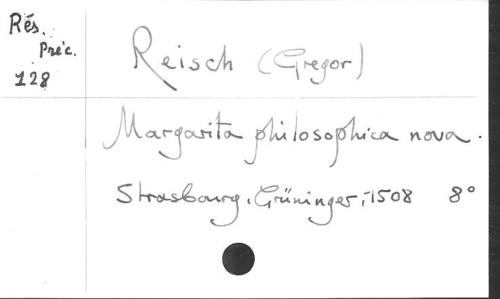 Rés.
Préc.
128
Reisch (Gregor)
Margarita philosophica nova.
Strasbourg, Grüninger, 1508 8°